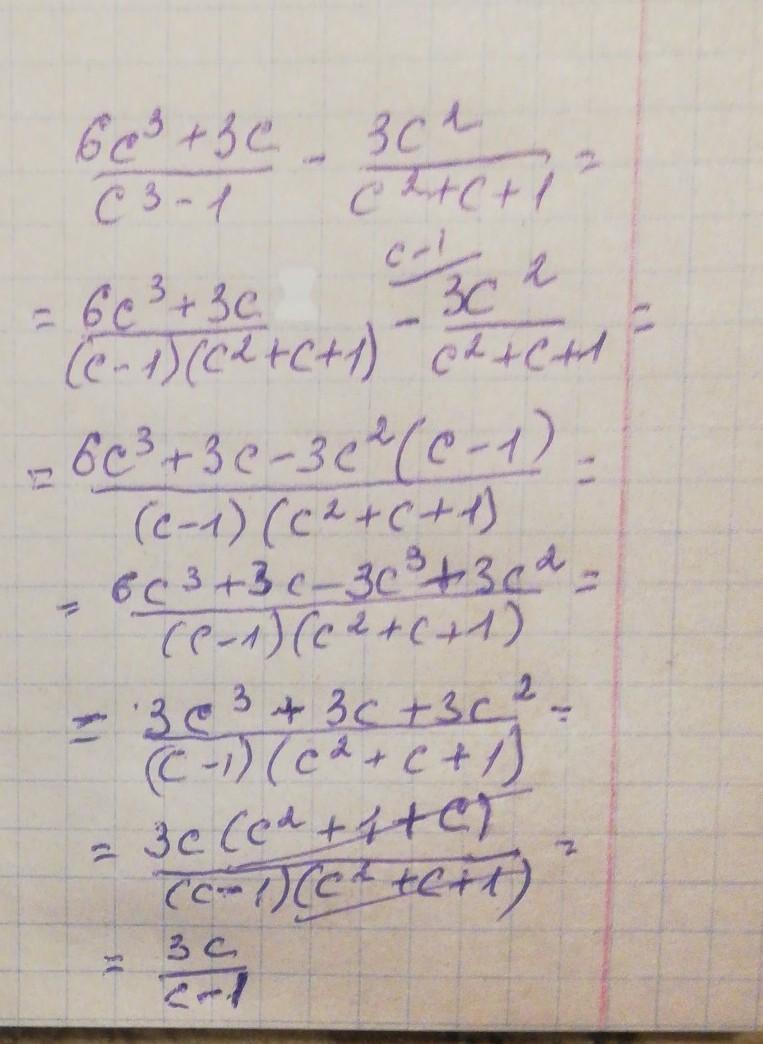 (6c³+3c)/(c³-1) - 3c²/(c²+c+1) =
c-1
= (6c³+3c)/((c-1)(c²+c+1)) - 3c²/(c²+c+1) =
= (6c³+3c-3c²(c-1))/((c-1)(c²+c+1)) =
= (6c³+3c-3c³+3c²)/((c-1)(c²+c+1)) =
= (3c³+3c+3c²)/((c-1)(c²+c+1)) =
= 3c(c²+1+c)/((c-1)(c²+c+1)) =
= 3c/(c-1)